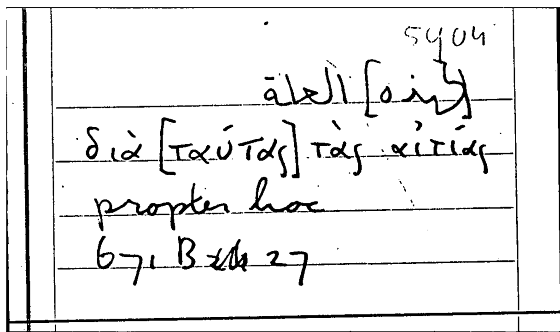 5404
[لهذه] العلة
διὰ [ταύτας] τὰς αἰτίας
propter hoc
671 B 27